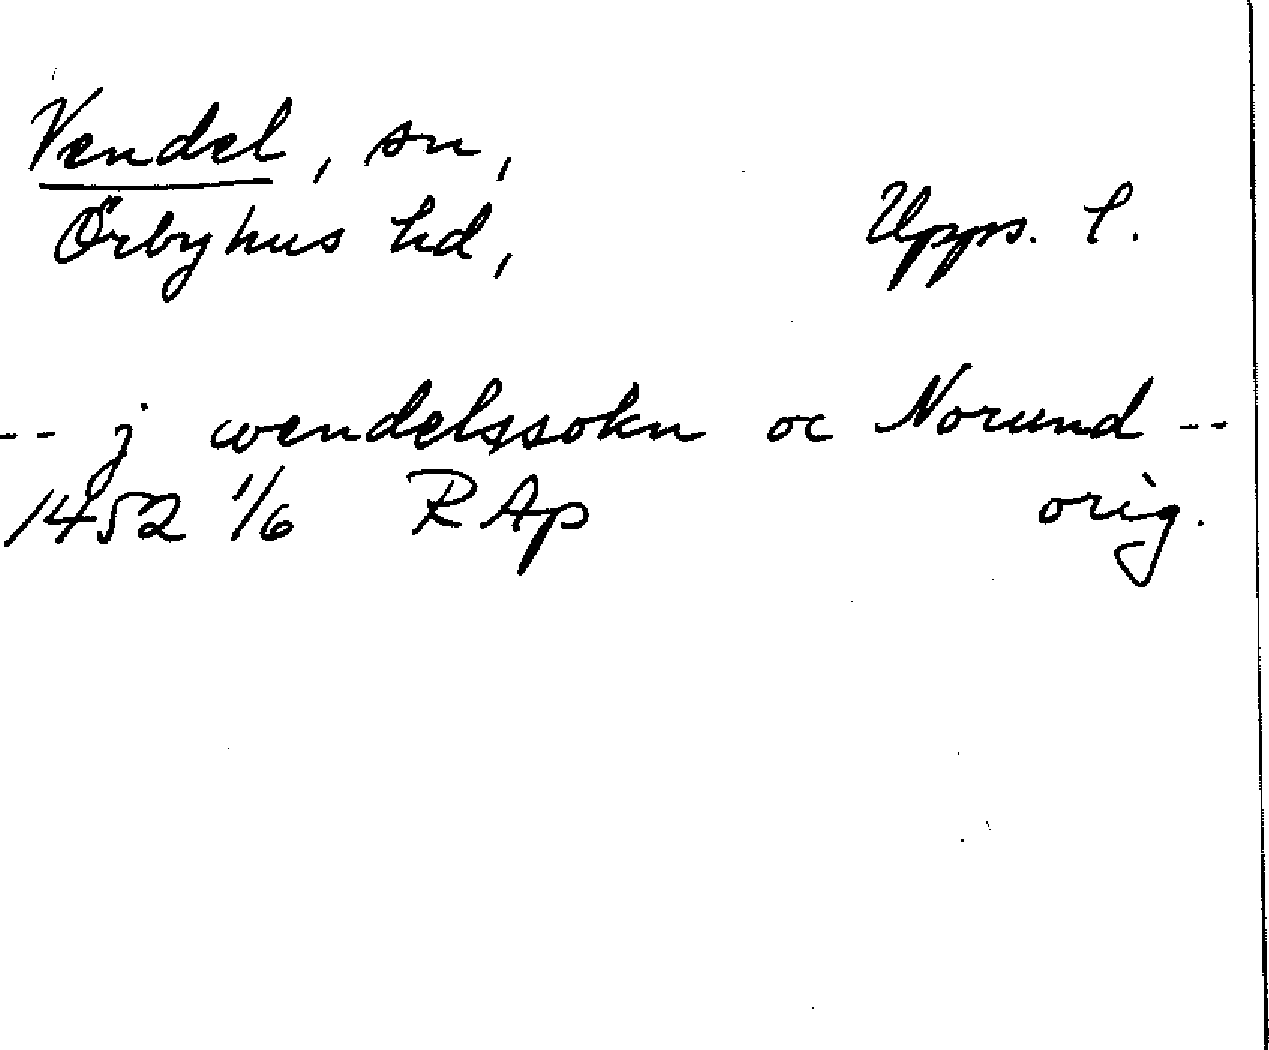 Vendel, sn,
Örbyhus hd, Upps. l.
-- j wendelssokn oc Norund --
1452 1/6 RAp orig.